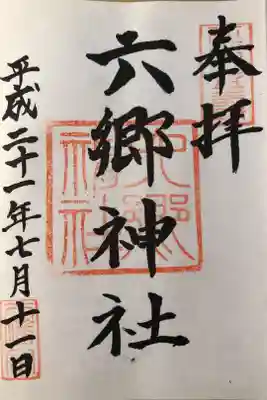 奉拝
六郷神社
平成二十一年七月十一日
六郷神社